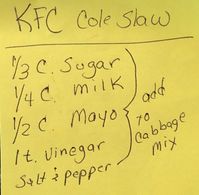 KFC Cole Slaw
1/3 C. Sugar
1/4 C. milk
1/2 C. Mayo
1 t. Vinegar
Salt & pepper
add
to
Cabbage
mix